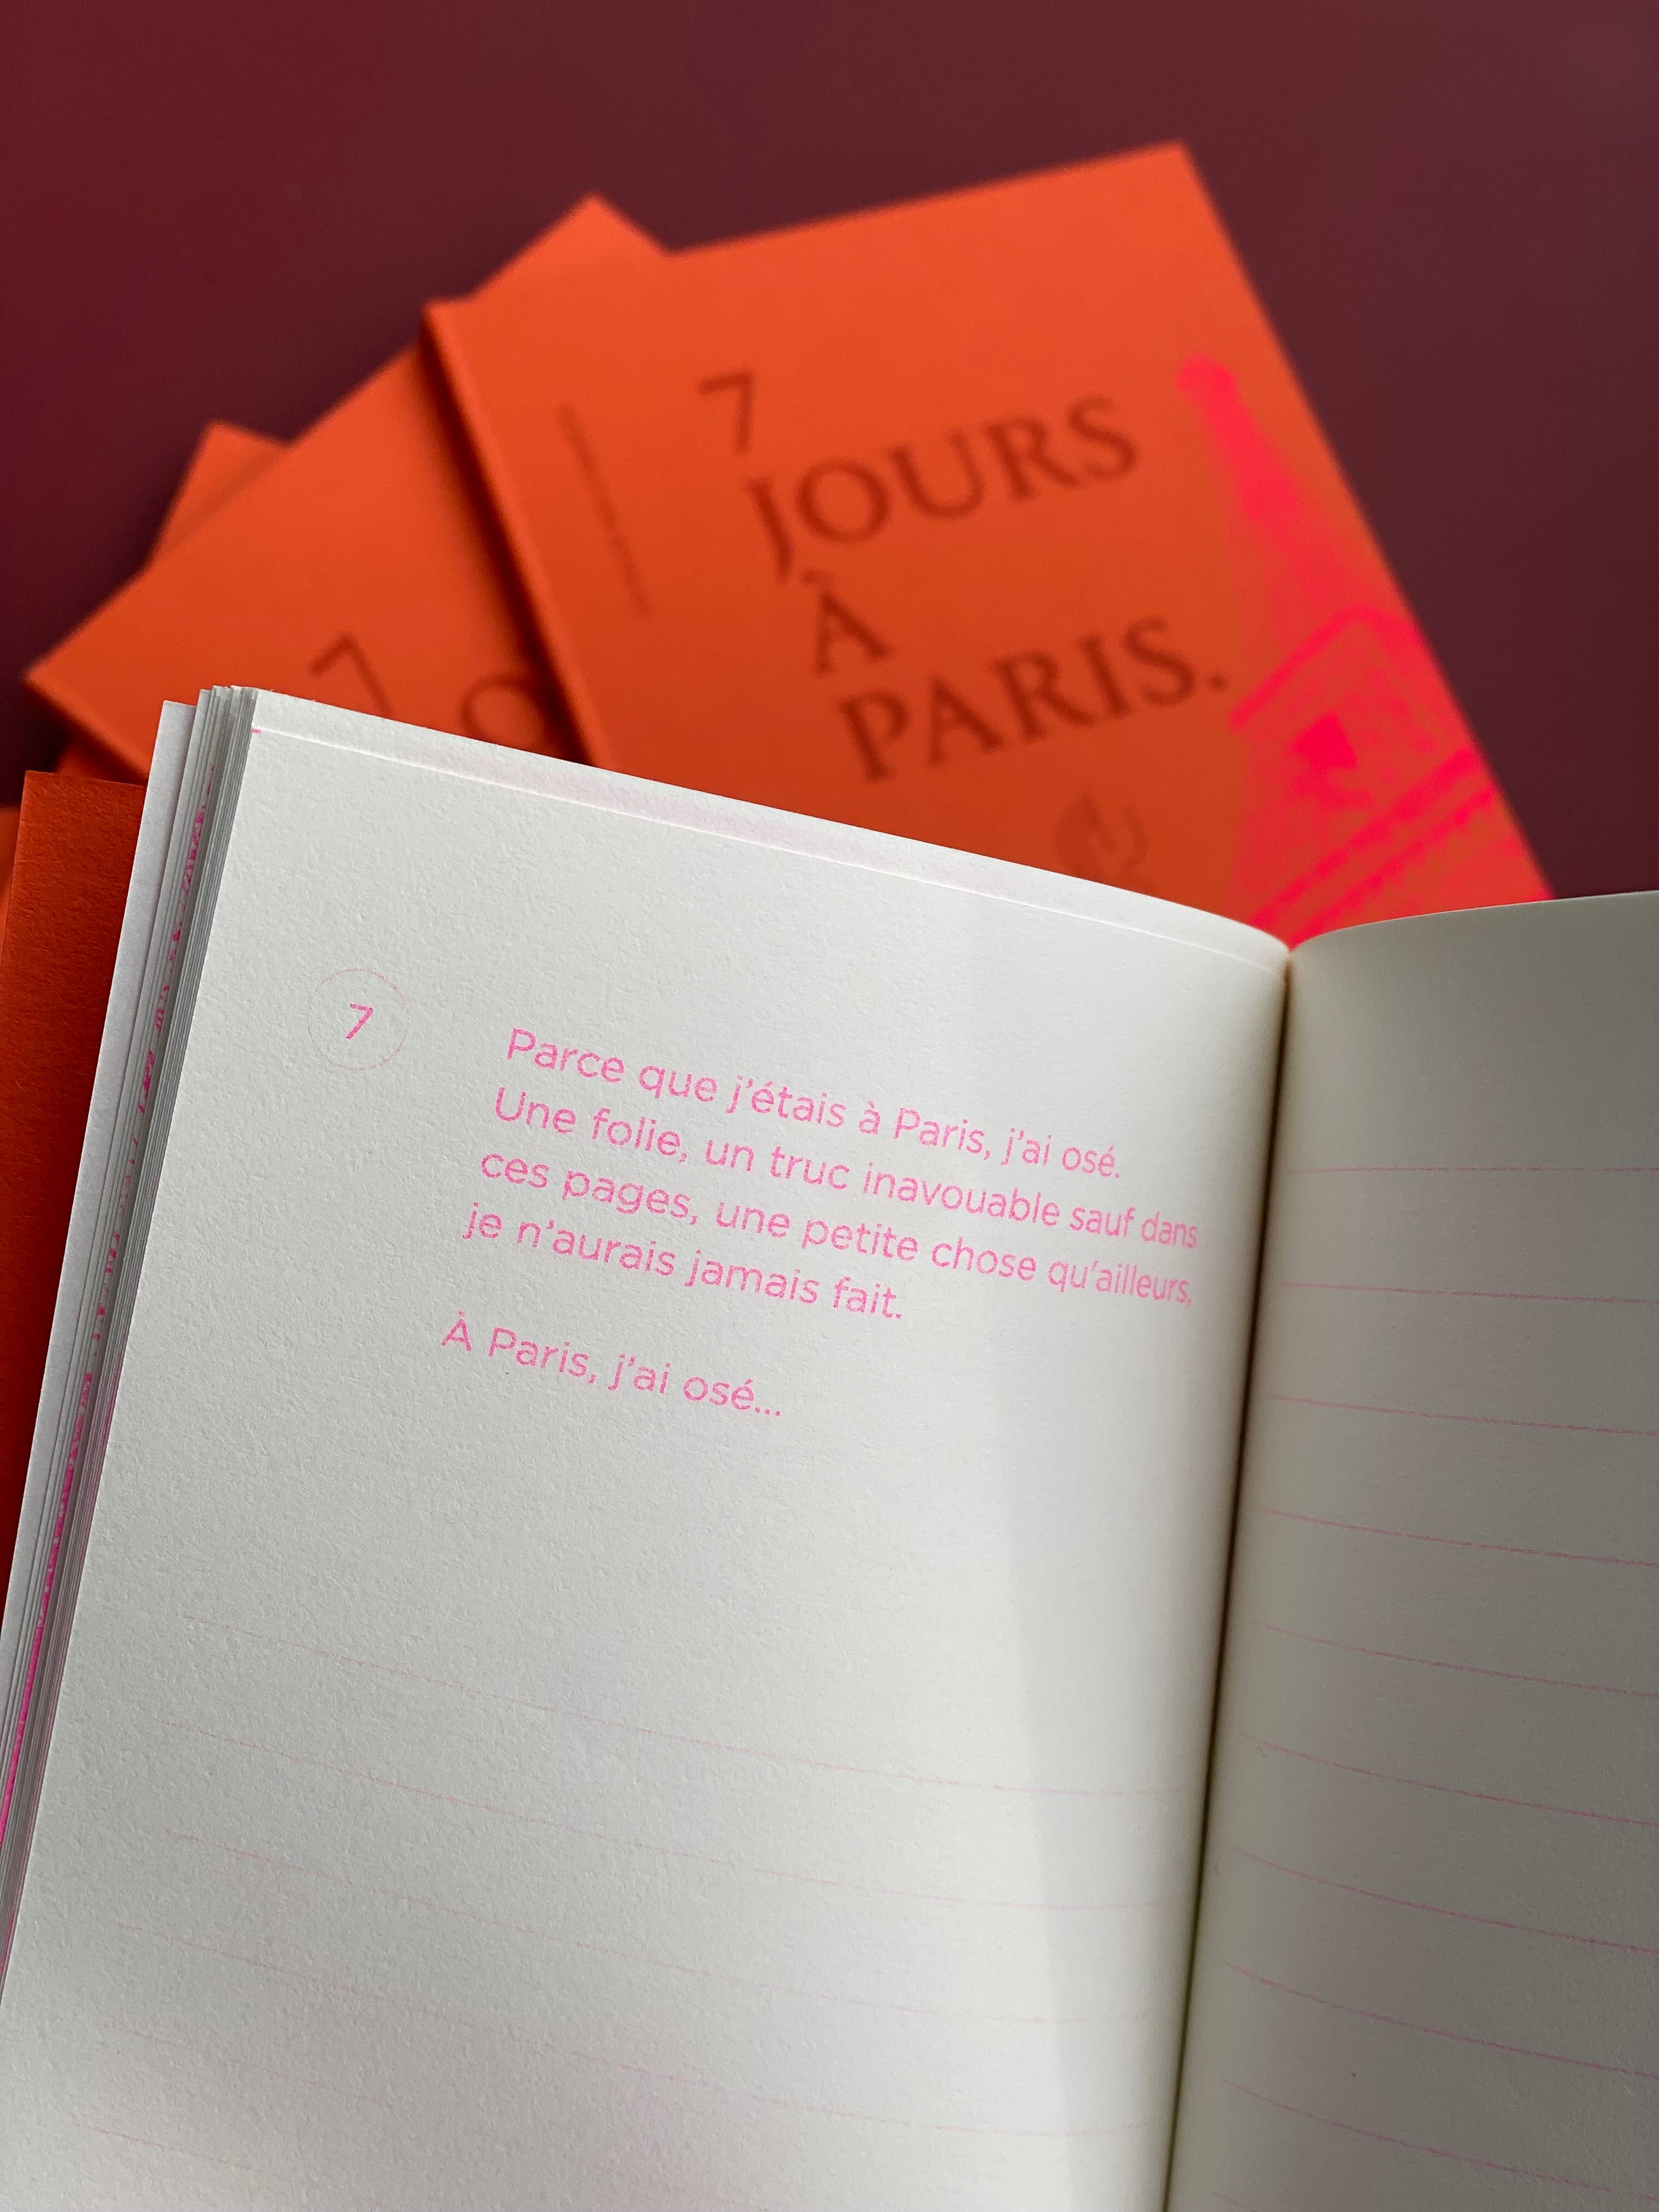 7
JOURS
À
PARIS.
7
7
Parce que j'étais à Paris, j'ai osé.
Une folie, un truc inavouable sauf dans
ces pages, une petite chose qu'ailleurs,
je n'aurais jamais fait.
À Paris, j'ai osé...